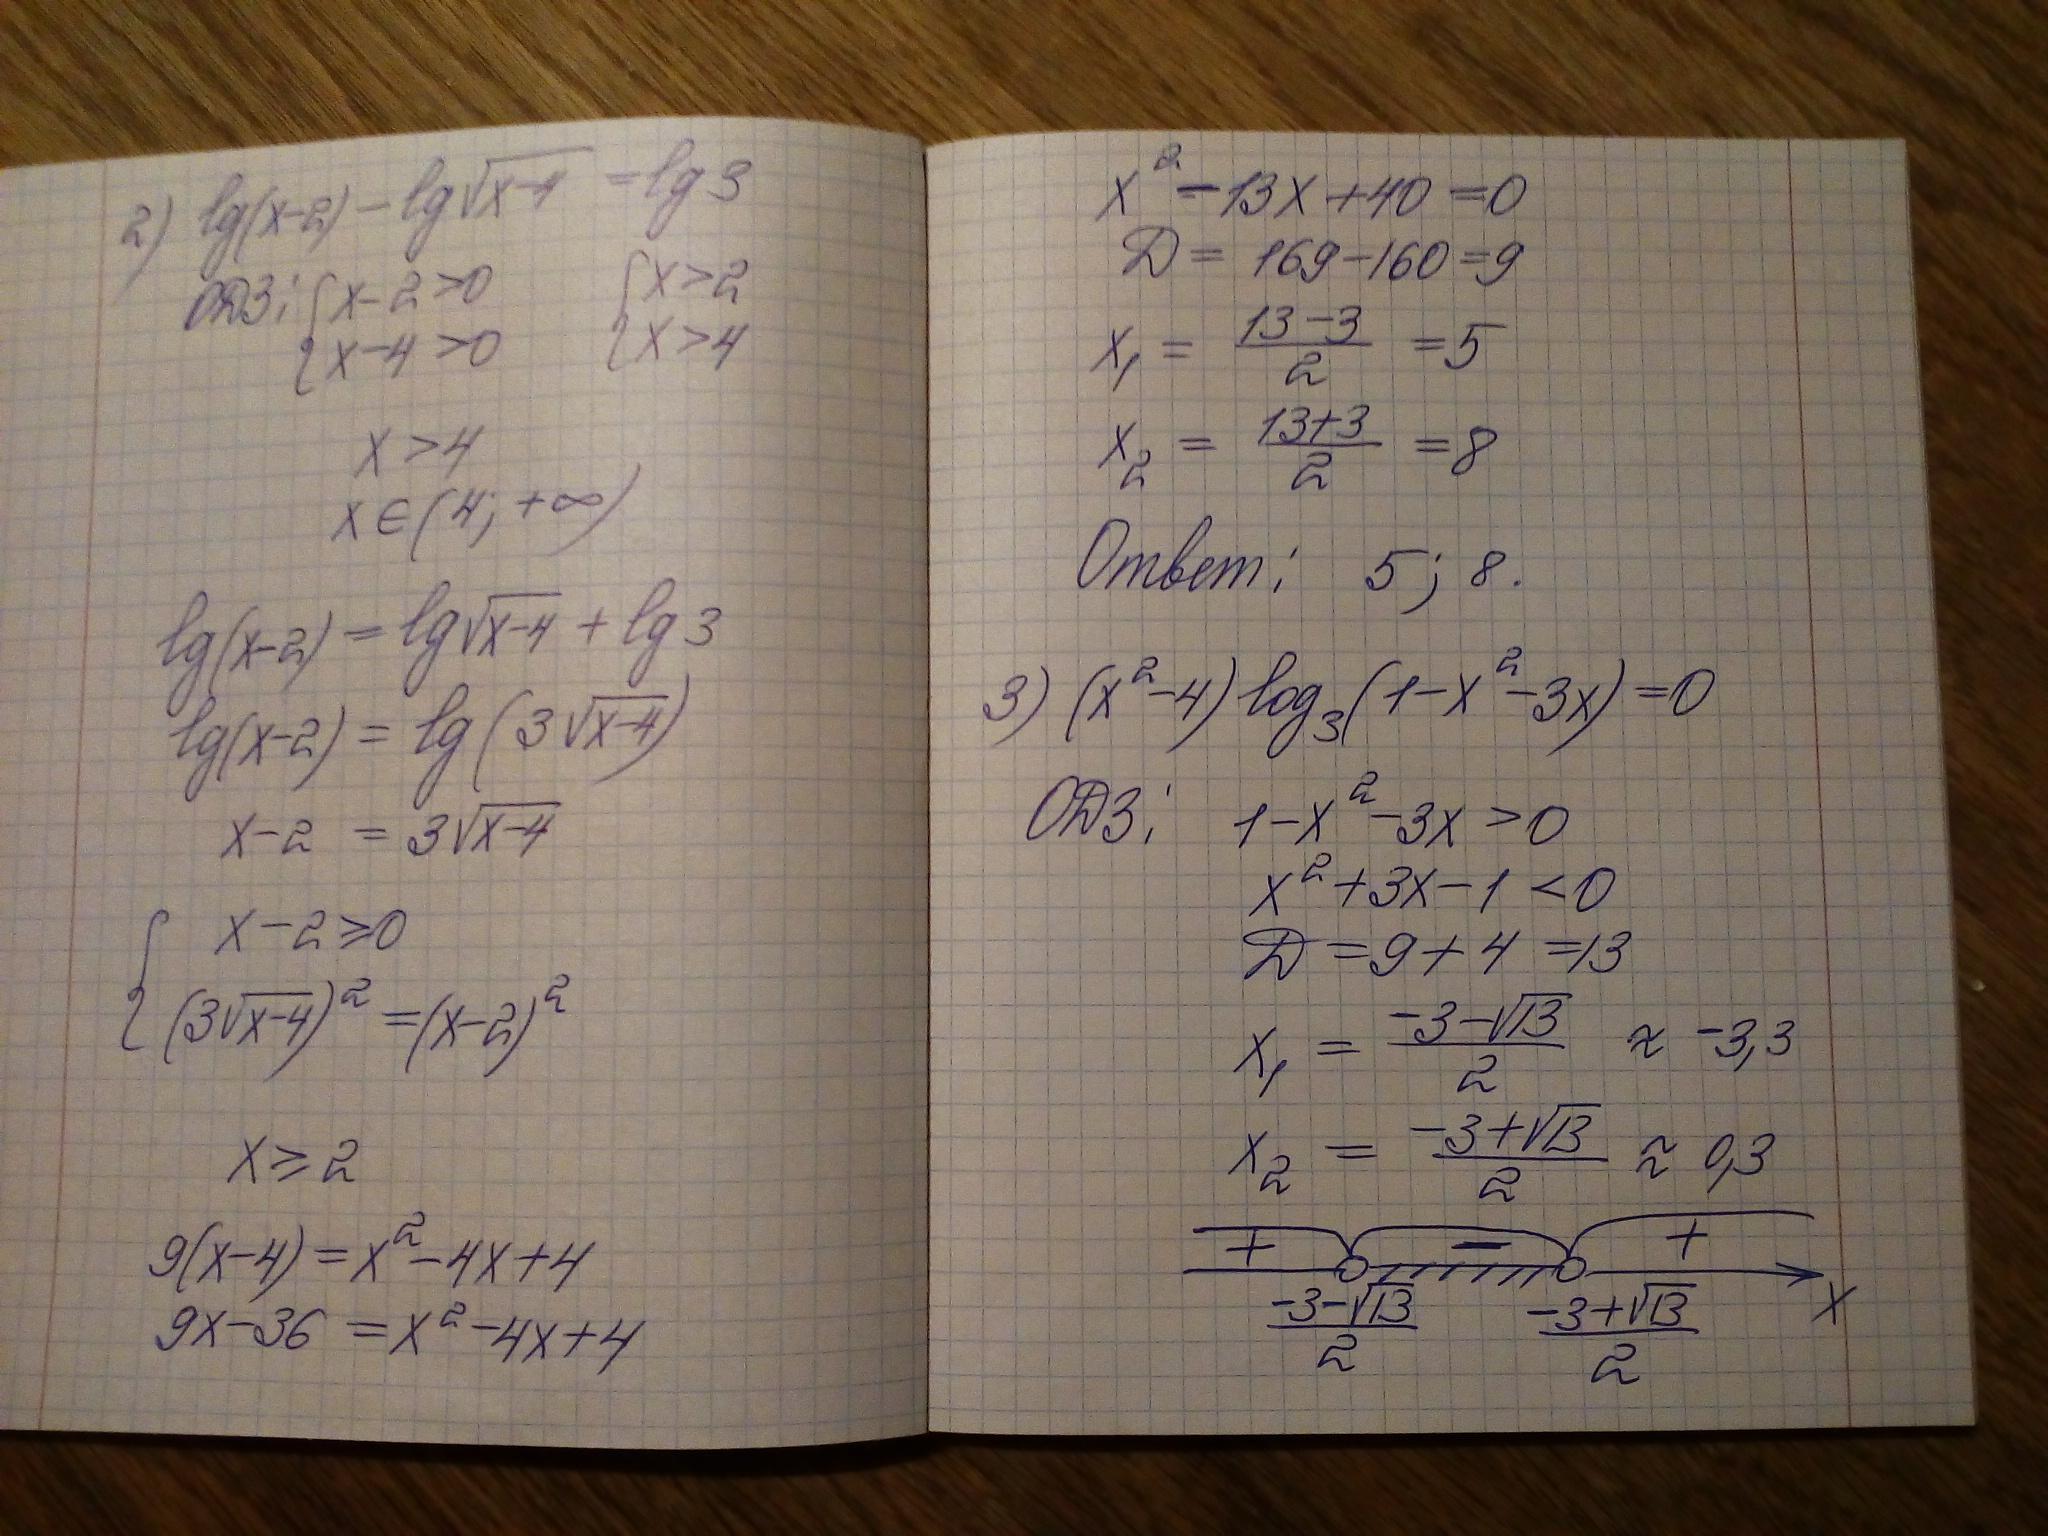 2) lg(x-2) - lg√(x-4) = lg3
ОДЗ: { x-2>0 { x>2
{ x-4>0 { x>4
x>4
x∈(4; +∞)
lg(x-2) = lg√(x-4) + lg3
lg(x-2) = lg(3√(x-4))
x-2 = 3√(x-4)
{ x-2≥0
{ (3√(x-4))² = (x-2)²
x≥2
9(x-4) = x²-4x+4
9x-36 = x²-4x+4
x²-13x+40=0
Д = 169-160=9
x₁ = (13-3)/2 = 5
x₂ = (13+3)/2 = 8
Ответ: 5; 8.
3) (x²-4) log₃(1-x²-3x)=0
ОДЗ: 1-x²-3x>0
x²+3x-1<0
Д = 9+4 = 13
x₁ = (-3-√13)/2 ≈ -3,3
x₂ = (-3+√13)/2 ≈ 0,3
+ - +
(-3-√13)/2 (-3+√13)/2 x